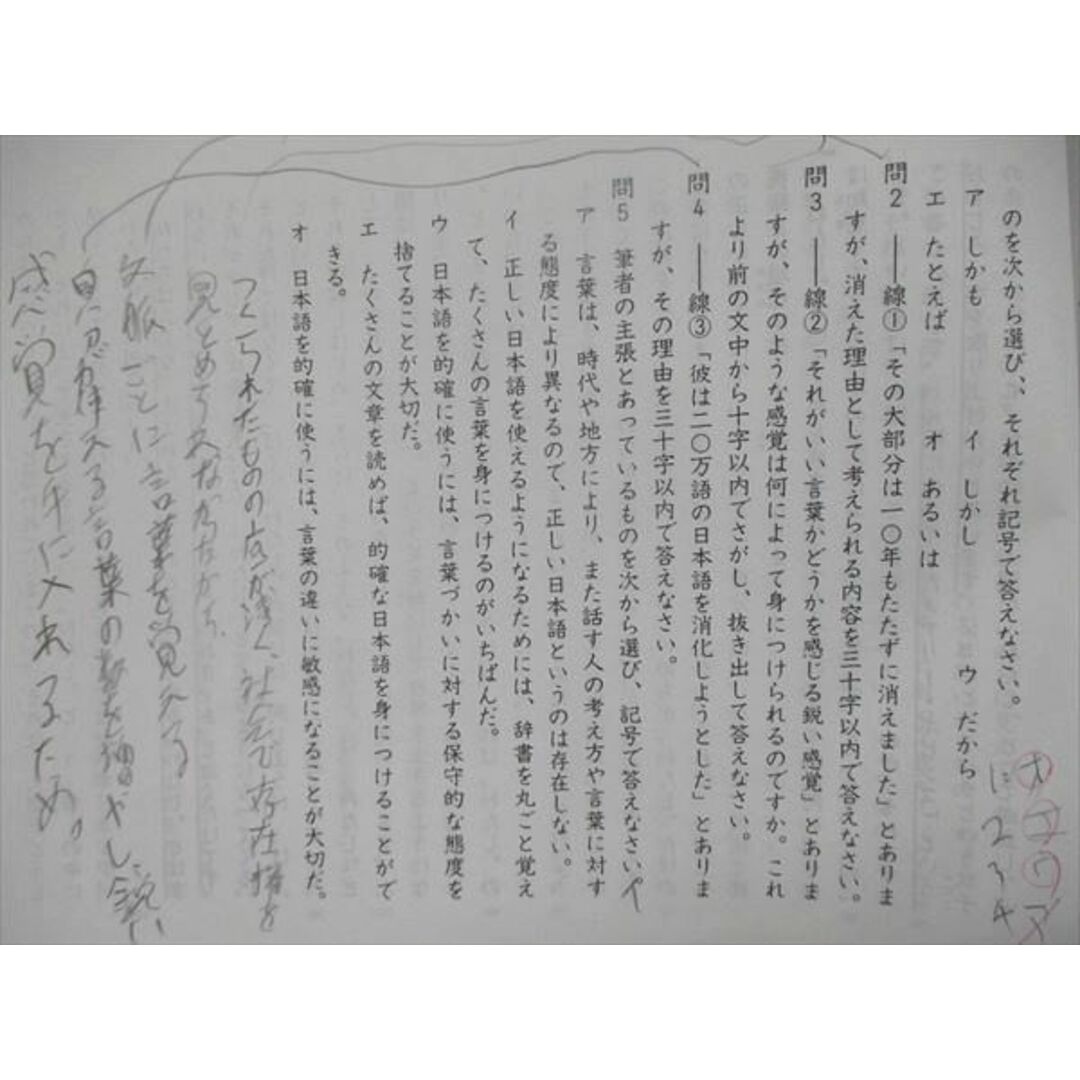 のを次から選び、、それぞれ記号で答えなさい。
ア しかも イ しかし ウ だから
エ たとえば オ あるいは
問2 ――線①「その大部分は一〇年もたたずに消えました」とありま
すが、消えた理由として考えられる内容を三十字以内で答えなさい。
問3 ――線②「それがいい言葉かどうかを感じる鋭い感覚」とありま
すが、そのような感覚は何によって身につけられるのですか。これ
より前の文中から十字以内でさがし、抜き出して答えなさい。
問4 ――線③「彼は二〇万語の日本語を消化しようとした」とありま
すが、その理由を三十字以内で答えなさい。
問5 筆者の主張とあっているものを次から選び、記号で答えなさい。
ア 言葉は、時代や地方により、また話す人の考え方や言葉に対す
る態度により異なるので、正しい日本語というのは存在しない。
イ 正しい日本語を使えるようになるためには、辞書を丸ごと覚え
て、たくさんの言葉を身につけるのがいちばんだ。
ウ 日本語を的確に使うには、言葉づかいに対する保守的な態度を
捨てることが大切だ。
エ たくさんの文章を読めば、的確な日本語を身につけることがで
きる。
オ 日本語を的確に使うには、言葉の違いに敏感になることが大切だ。
つくられたものの底が浅く、社会で存在権を
見とめてえなかったから、
文脈ごとに言葉を覚える
える言葉の数を増やし、鋭い
感覚を手に入れるため。
オ エ ウ ア
に 2 3 4